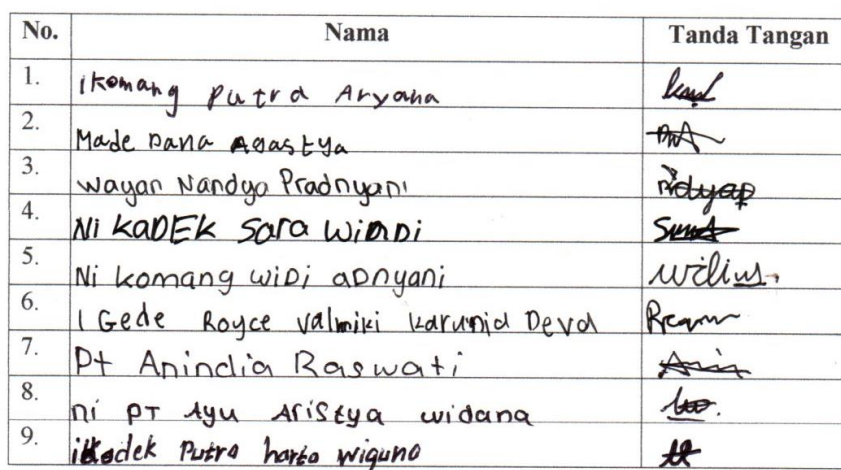 No. Nama Tanda Tangan
1. iKomang Putra Aryana
2. Made Dana Agastya
3. Wayan Nandya Pradnyani
4. Ni KaDEK Sara WiDDi
5. Ni komang wiDi aDnyani
6. I Gede Royce Valmiki Karunia Deva
7. Pt Anindia Raswati
8. ni PT Ayu Aristya widana
9. iKadek Putra harta wiguna